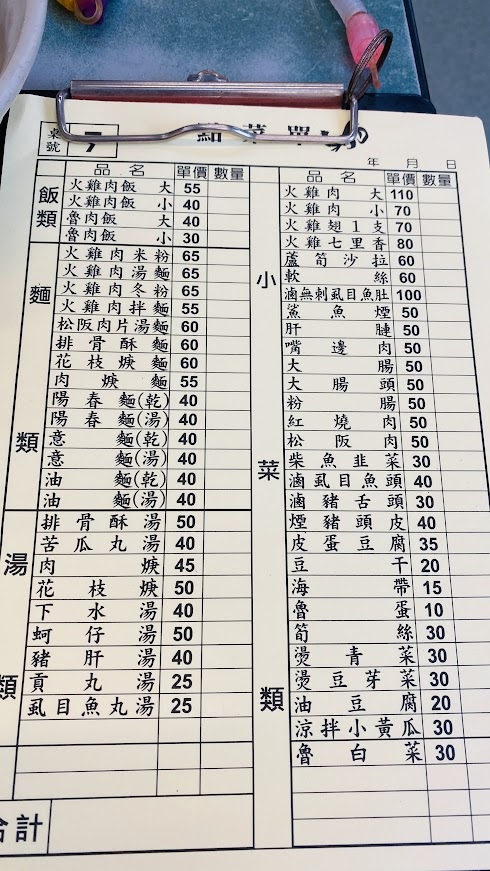 桌號 7 菜單
年 月 日
品名 單價 數量
飯類
火雞肉飯 大 55
火雞肉飯 小 40
魯肉飯 大 40
魯肉飯 小 30
麵類
火雞肉米粉 65
火雞肉湯麵 65
火雞肉冬粉 65
火雞肉拌麵 55
松阪肉片湯麵 60
排骨酥麵 60
花枝焿麵 60
肉焿麵 55
陽春麵(乾) 40
陽春麵(湯) 40
意麵(乾) 40
意麵(湯) 40
油麵(乾) 40
油麵(湯) 40
湯類
排骨酥湯 50
苦瓜丸湯 40
肉焿 45
花枝焿 50
下水湯 40
蚵仔湯 50
豬肝湯 40
貢丸湯 25
虱目魚丸湯 25
合計
品名 單價 數量
小菜類
火雞肉 大 110
火雞肉 小 70
火雞翅1支 70
火雞七里香 80
蘆筍沙拉 60
軟絲 60
滷無刺虱目魚肚 100
鯊魚煙 50
肝腱 50
嘴邊肉 50
大腸 50
大腸頭 50
粉腸 50
紅燒肉 50
松阪肉 50
柴魚韭菜 30
滷虱目魚頭 40
滷豬舌頭 30
煙豬頭皮 40
皮蛋豆腐 35
豆干 20
海帶 15
魯蛋 10
筍絲 30
燙青菜 30
燙豆芽菜 30
油豆腐 20
涼拌小黃瓜 30
魯白菜 30